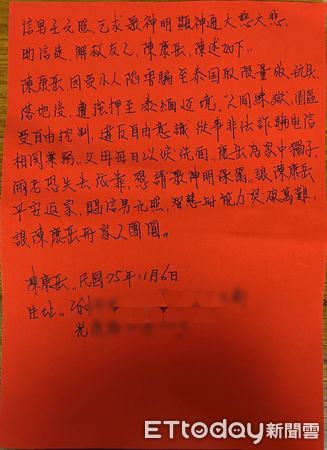 信男王元熙,乞求眾神明顯神通大慈大悲,
助信徒,解救友人,陳康辰,陳述如下。
陳康辰,因受小人陷害騙至泰國取限量版玩具
落地後,遭強押至泰緬边境,"人間煉獄,園區
受自由控制,違反自由意識從事非法詐騙電信
相関業務。父母每日以淚洗面,康辰為家中獨子,
兩老恐失去依靠,懇請眾神明保駕,讓陳康辰
平安返家,賜信男元熙,智慧與能力突破萬難,
讓陳康辰与家人團圓。
陳康辰,民國75年11月6日
住址..
ETtoday新聞雲